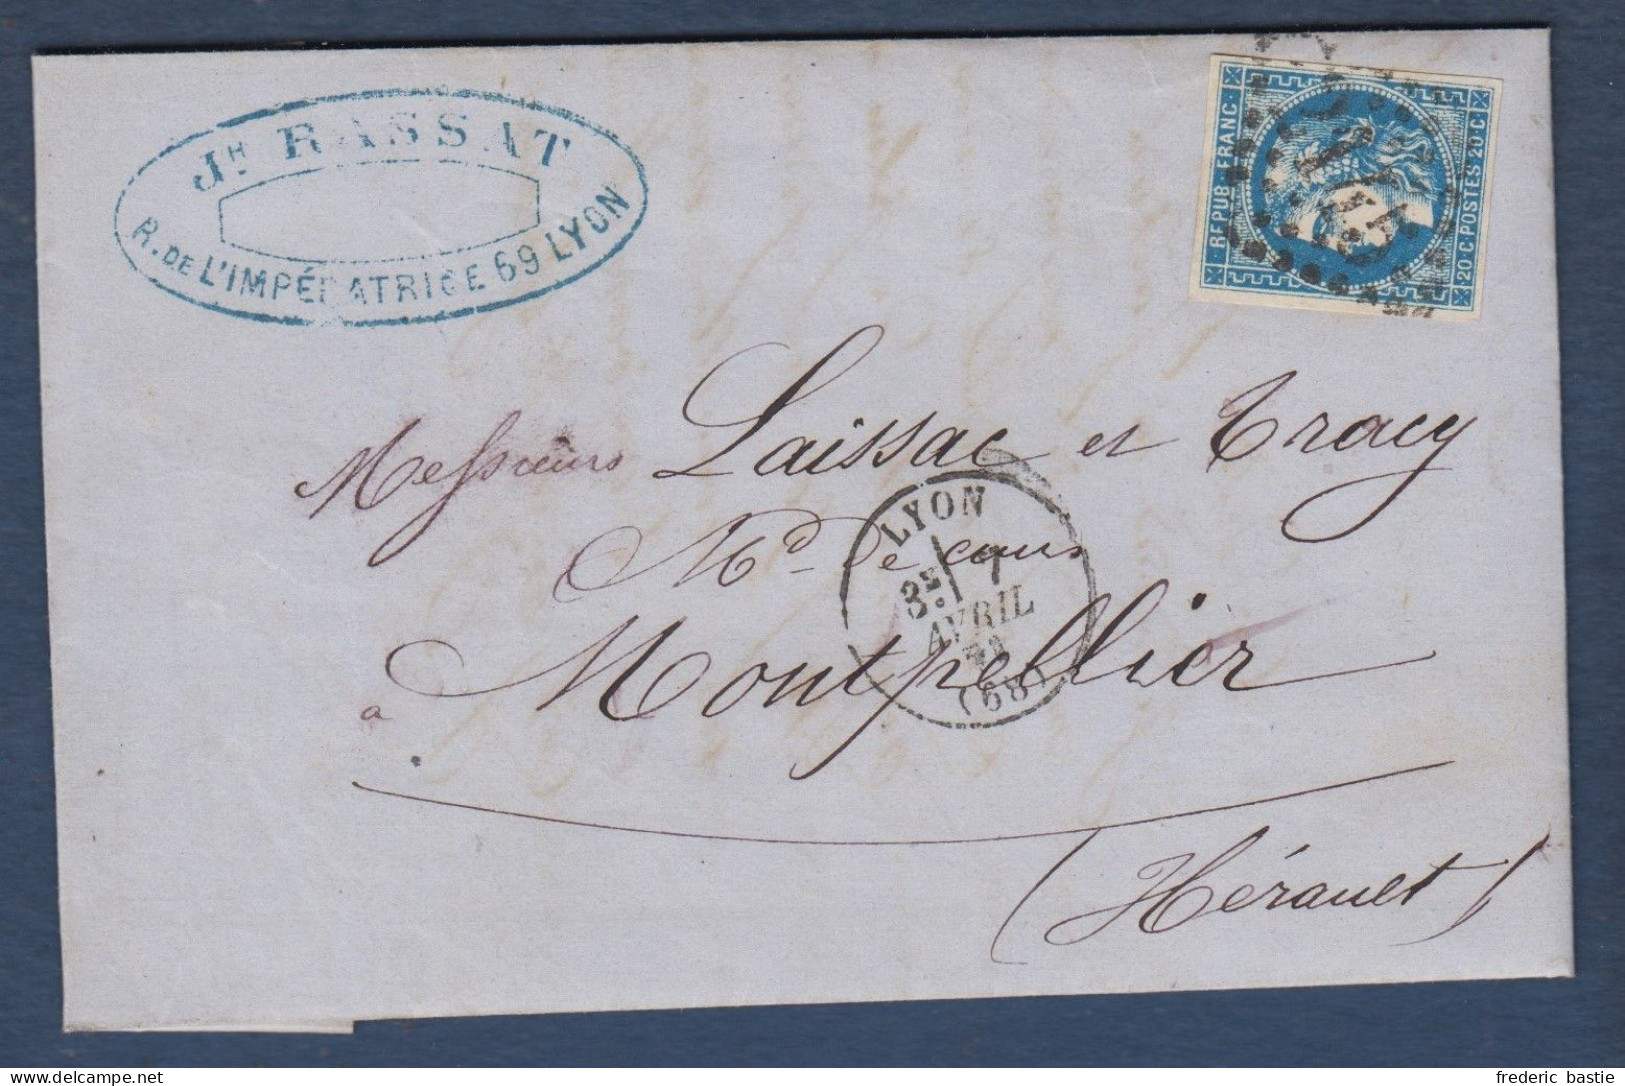 Jh RASSAT
R. DE L'IMPÉRATRICE 69 LYON
REPUB FRANC
20 C POSTES 20 C
Messieurs Laissac et Tracy
Md de cuirs
LYON
3E 7
AVRIL
71
(68)
a Montpellier
(Hérault)
frederic bastie